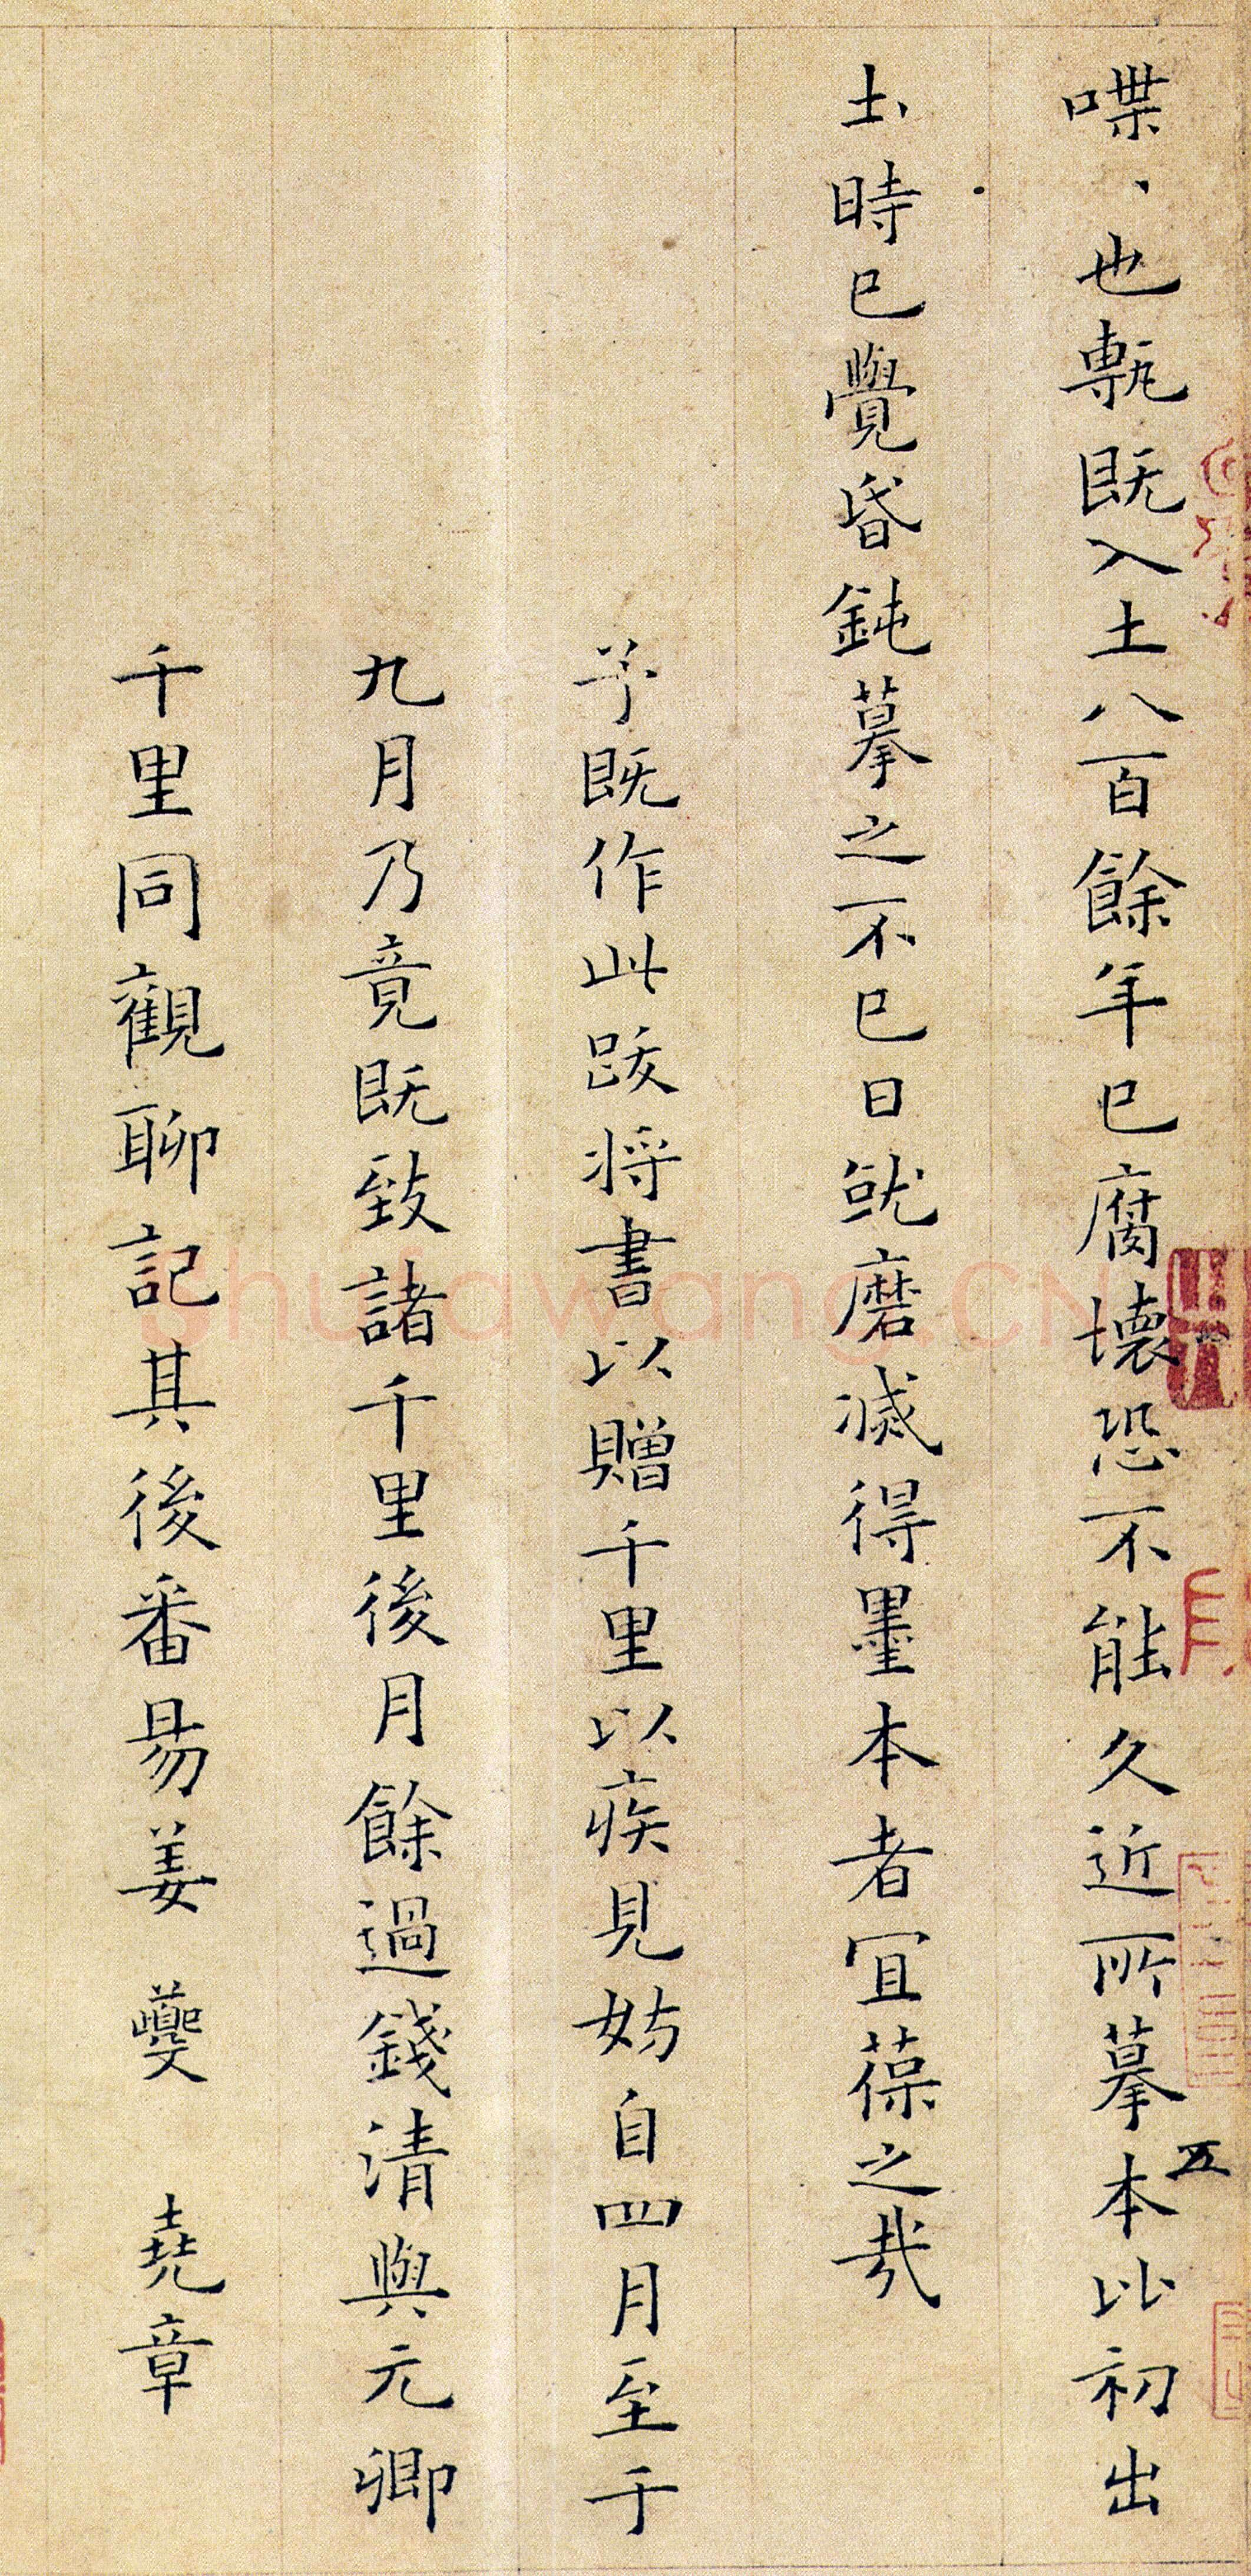 喋、也甎既入土八百餘年已腐壞恐不能久近所摹本比初出
五
土時已覺昏鈍摹之不已日就磨滅得墨本者宜葆之哉
予既作此跋將書以贈千里以疾見妨自四月至于
九月乃竟既致諸千里後月餘過錢清與元卿
千里同觀聊記其後番昜姜夔堯章